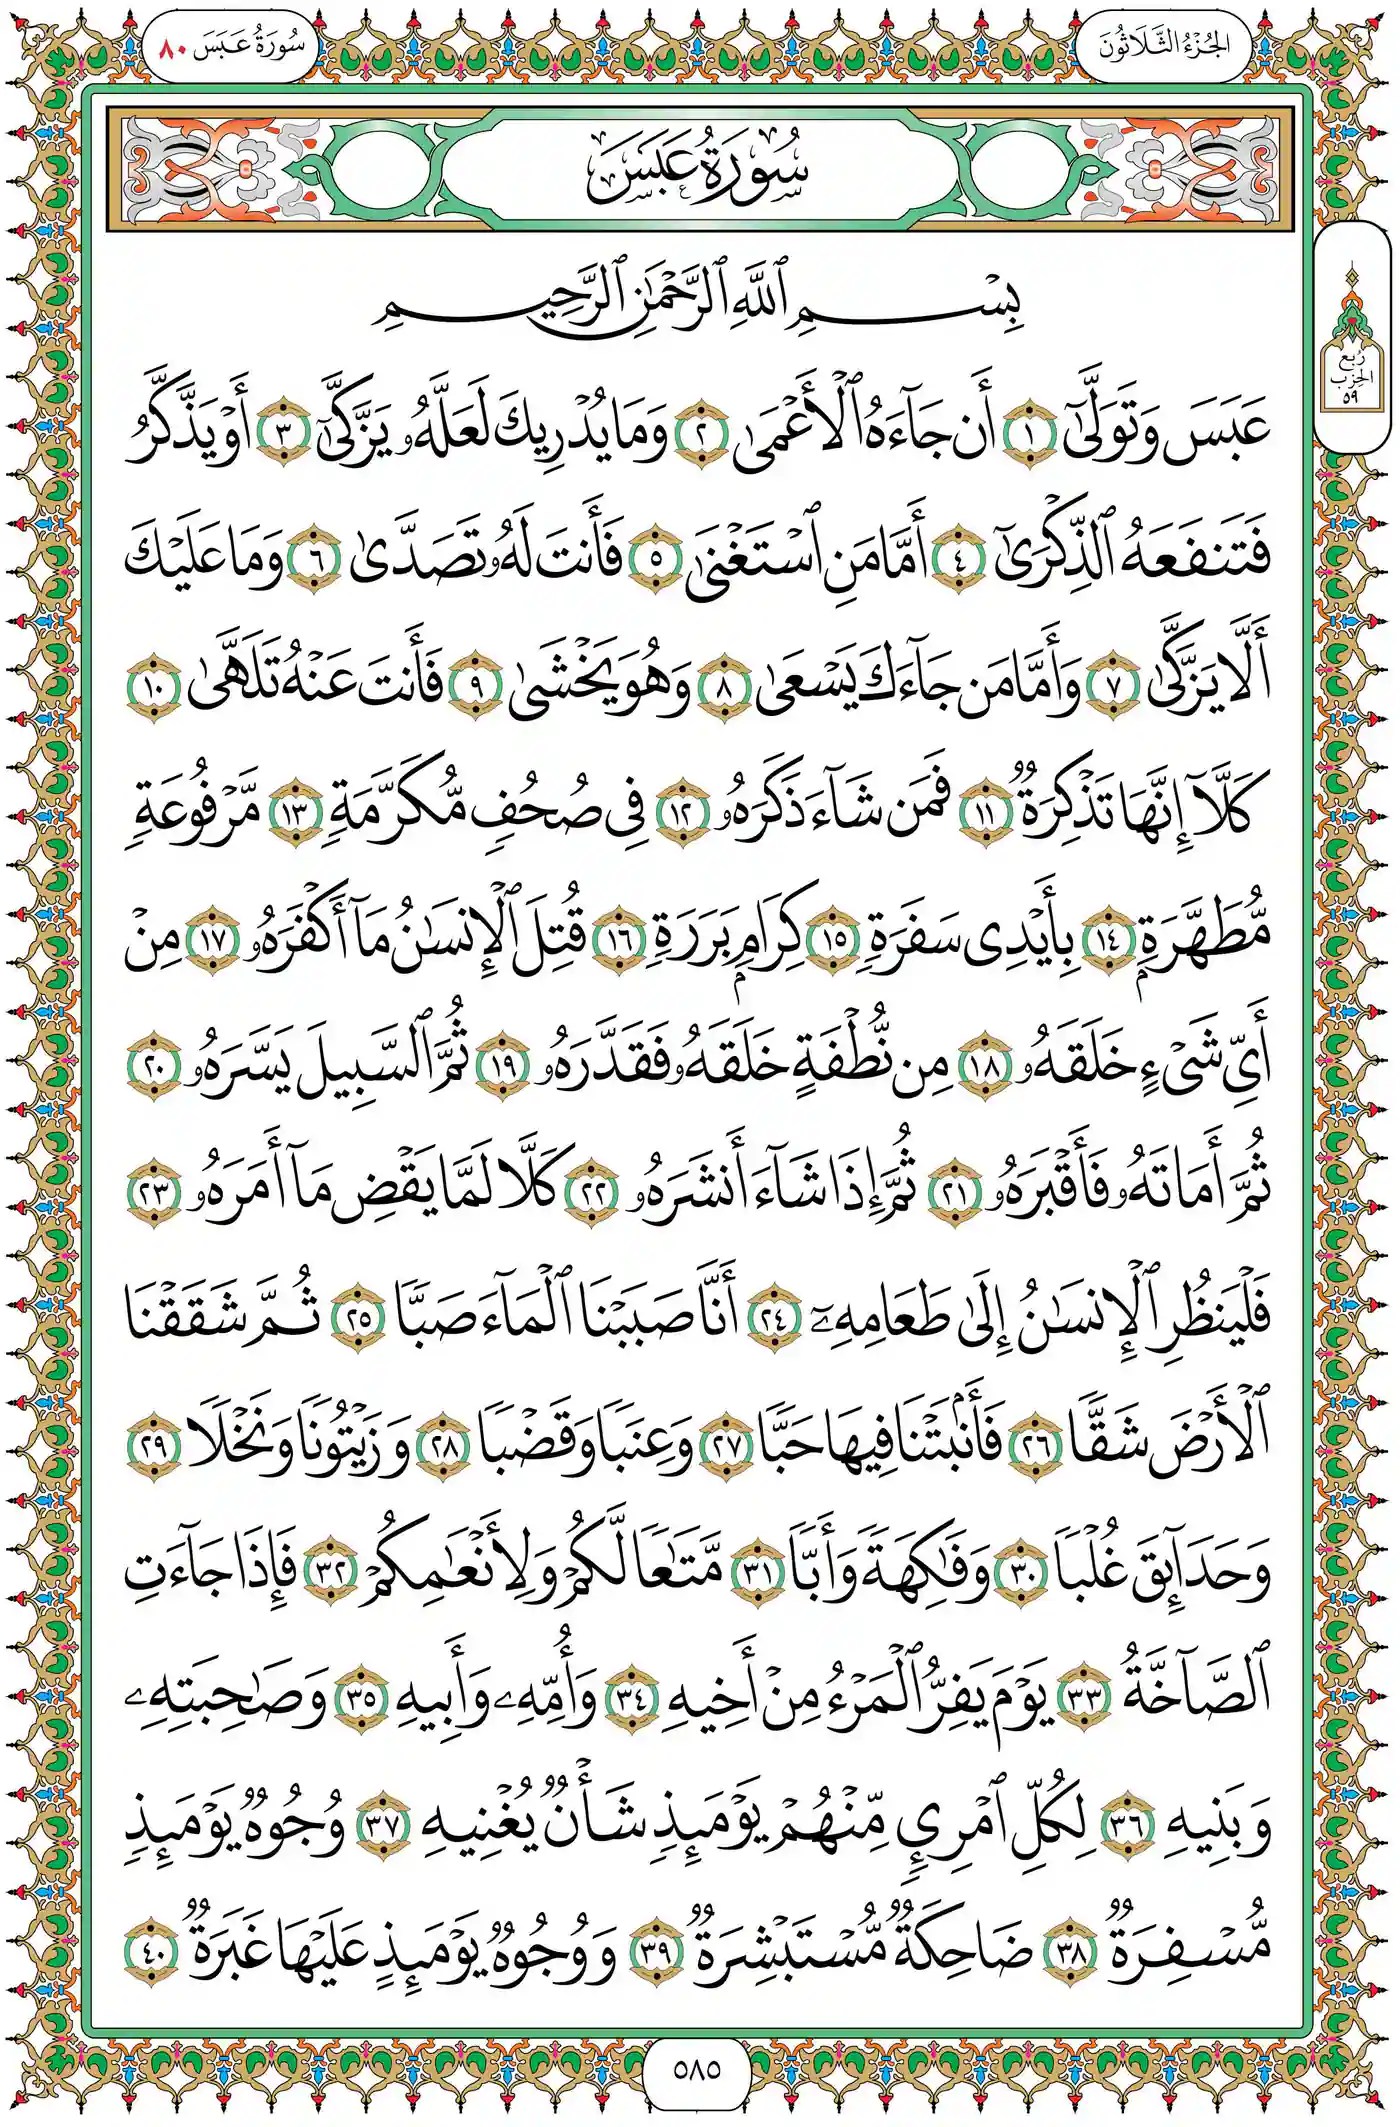 الجُزْءُ الثَّلَاثُونَ
سُورَةُ عَبَسَ ٨٠
سُورَةُ عَبَسَ
بِسْمِ ٱللَّهِ ٱلرَّحْمَٰنِ ٱلرَّحِيمِ
رُبع
الحِزب
٥٩
عَبَسَ وَتَوَلَّىٰٓ ١ أَن جَآءَهُ ٱلْأَعْمَىٰ ٢ وَمَا يُدْرِيكَ لَعَلَّهُۥ يَزَّكَّىٰٓ ٣ أَوْ يَذَّكَّرُ
فَتَنفَعَهُ ٱلذِّكْرَىٰٓ ٤ أَمَّا مَنِ ٱسْتَغْنَىٰ ٥ فَأَنتَ لَهُۥ تَصَدَّىٰ ٦ وَمَا عَلَيْكَ
أَلَّا يَزَّكَّىٰ ٧ وَأَمَّا مَن جَآءَكَ يَسْعَىٰ ٨ وَهُوَ يَخْشَىٰ ٩ فَأَنتَ عَنْهُ تَلَهَّىٰ ١٠
كَلَّآ إِنَّهَا تَذْكِرَةٌ ١١ فَمَن شَآءَ ذَكَرَهُۥ ١٢ فِى صُحُفٍ مُّكَرَّمَةٍ ١٣ مَّرْفُوعَةٍ
مُّطَهَّرَةٍۭ ١٤ بِأَيْدِى سَفَرَةٍ ١٥ كِرَامٍۭ بَرَرَةٍ ١٦ قُتِلَ ٱلْإِنسَٰنُ مَآ أَكْفَرَهُۥ ١٧ مِنْ
أَىِّ شَىْءٍ خَلَقَهُۥ ١٨ مِن نُّطْفَةٍ خَلَقَهُۥ فَقَدَّرَهُۥ ١٩ ثُمَّ ٱلسَّبِيلَ يَسَّرَهُۥ ٢٠
ثُمَّ أَمَاتَهُۥ فَأَقْبَرَهُۥ ٢١ ثُمَّ إِذَا شَآءَ أَنشَرَهُۥ ٢٢ كَلَّا لَمَّا يَقْضِ مَآ أَمَرَهُۥ ٢٣
فَلْيَنظُرِ ٱلْإِنسَٰنُ إِلَىٰ طَعَامِهِۦٓ ٢٤ أَنَّا صَبَبْنَا ٱلْمَآءَ صَبًّا ٢٥ ثُمَّ شَقَقْنَا
ٱلْأَرْضَ شَقًّا ٢٦ فَأَنۢبَتْنَا فِيهَا حَبًّا ٢٧ وَعِنَبًا وَقَضْبًا ٢٨ وَزَيْتُونًا وَنَخْلًا ٢٩
وَحَدَآئِقَ غُلْبًا ٣٠ وَفَٰكِهَةً وَأَبًّا ٣١ مَّتَٰعًا لَّكُمْ وَلِأَنْعَٰمِكُمْ ٣٢ فَإِذَا جَآءَتِ
ٱلصَّآخَّةُ ٣٣ يَوْمَ يَفِرُّ ٱلْمَرْءُ مِنْ أَخِيهِ ٣٤ وَأُمِّهِۦ وَأَبِيهِ ٣٥ وَصَٰحِبَتِهِۦ
وَبَنِيهِ ٣٦ لِكُلِّ ٱمْرِئٍ مِّنْهُمْ يَوْمَئِذٍ شَأْنٌ يُغْنِيهِ ٣٧ وُجُوهٌ يَوْمَئِذٍ
مُّسْفِرَةٌ ٣٨ ضَاحِكَةٌ مُّسْتَبْشِرَةٌ ٣٩ وَوُجُوهٌ يَوْمَئِذٍ عَلَيْهَا غَبَرَةٌ ٤٠
٥٨٥